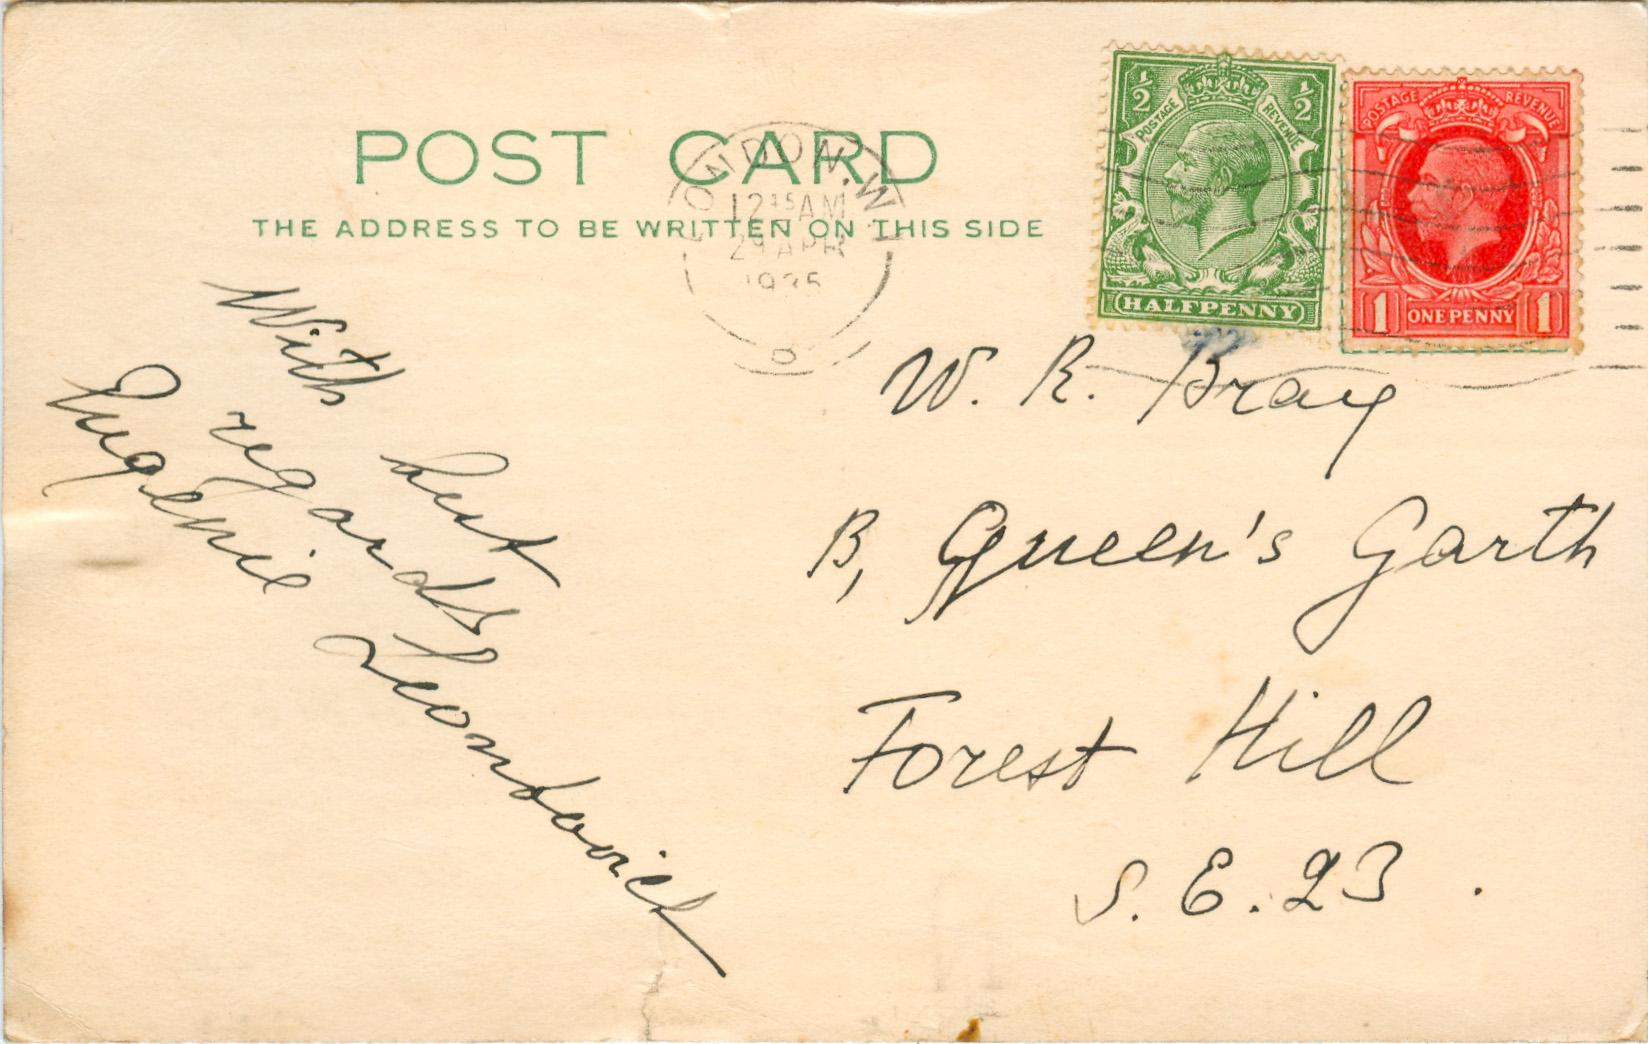 POST CARD
THE ADDRESS TO BE WRITTEN ON THIS SIDE
LONDON. W.1
12 15 AM
29 APR
1935
½ ½
POSTAGE REVENUE
HALFPENNY
POSTAGE REVENUE
1 ONE PENNY 1
With best
regards
Eugenie
W. R. Bray
B, Queen's Garth
Forest Hill
S. E. 23.